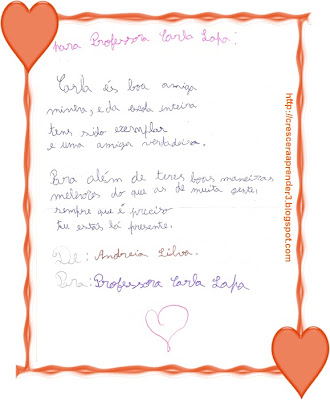 para Professora Carla Lapa:
Carla és boa amiga
minha, e da escola inteira
tens sido exemplar
e uma amiga verdadeira.
Para além de teres boas maneiras
melhores do que as de muita gente.
sempre que é preciso
tu estás lá presente.
De: Andreia Silva.
Para: Professora Carla Lapa
http://cresceraaprender3.blogspot.com